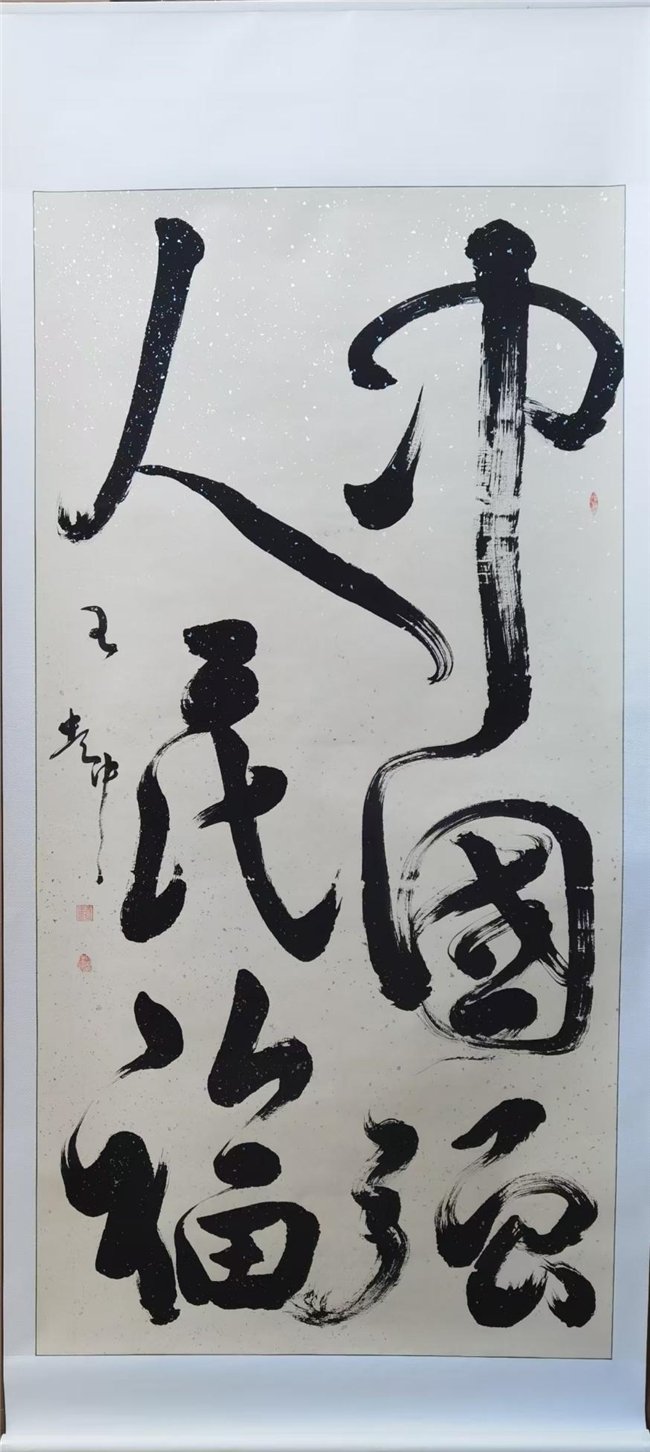 中國强
人民福